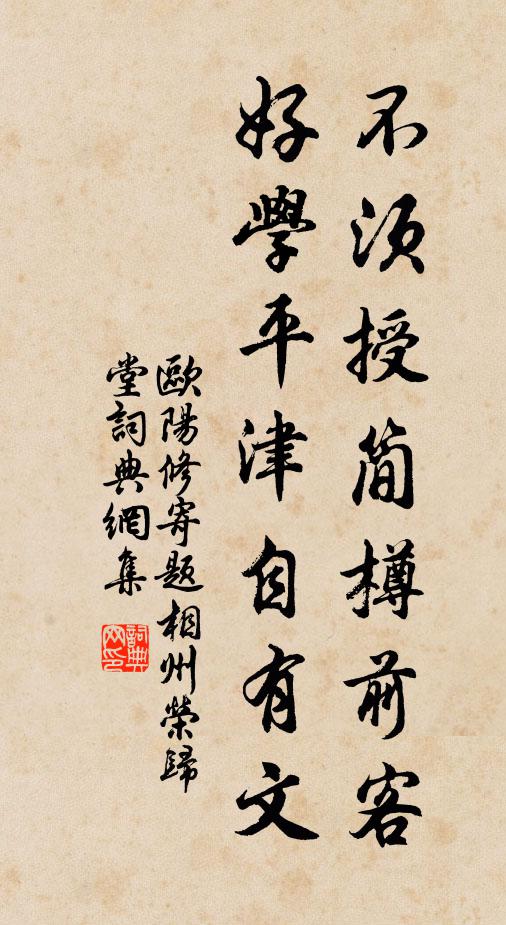 不須授簡樽前客
好學平津自有文
歐陽修寄題相州榮歸
堂詞典網集
詞典
网印